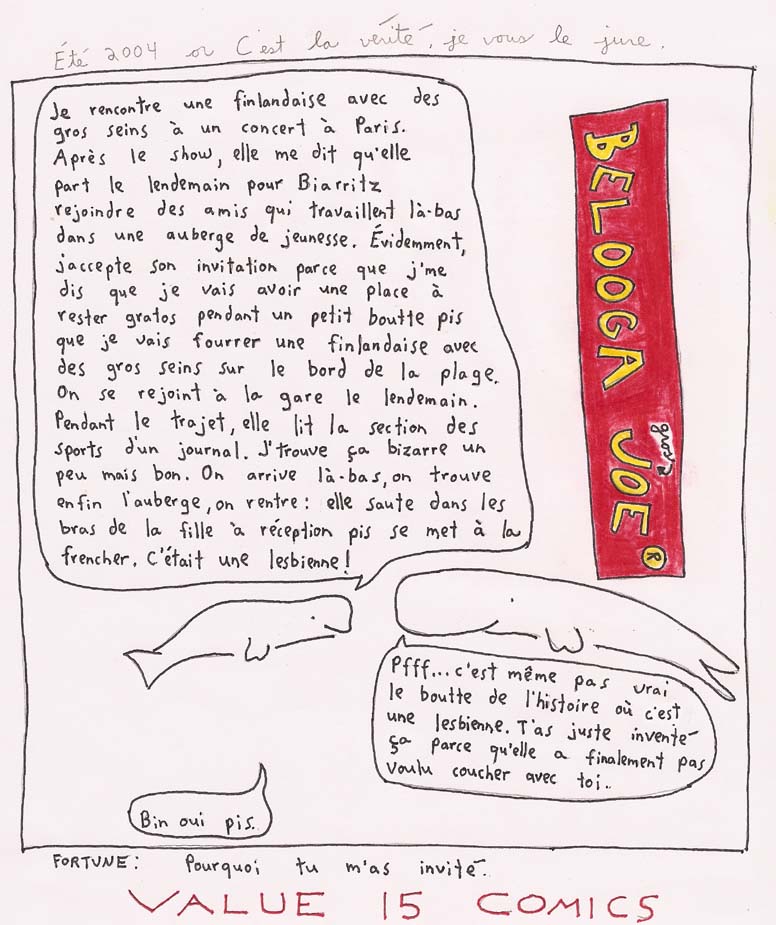 Été 2004 or C'est la vérité, je vous le jure.
Je rencontre une finlandaise avec des
gros seins à un concert à Paris.
Après le show, elle me dit qu'elle
part le lendemain pour Biarritz
rejoindre des amis qui travaillent là-bas
dans une auberge de jeunesse. Évidemment,
j'accepte son invitation parce que j'me
dis que je vais avoir une place à
rester gratos pendant un petit boutte pis
que je vais fourrer une finlandaise avec
des gros seins sur le bord de la plage.
On se rejoint à la gare le lendemain.
Pendant le trajet, elle lit la section des
sports d'un journal. J'trouve ça bizarre un
peu mais bon. On arrive là-bas, on trouve
enfin l'auberge, on rentre: elle saute dans les
bras de la fille à réception pis se met à la
frencher. C'était une lesbienne!
BELOOGA JOE ®
Pfff... c'est même pas vrai
le boutte de l'histoire où c'est
une lesbienne. T'as juste inventé
ça parce qu'elle a finalement pas
voulu coucher avec toi..
Bin oui pis.
FORTUNE: Pourquoi tu m'as invité.
VALUE 15 COMICS